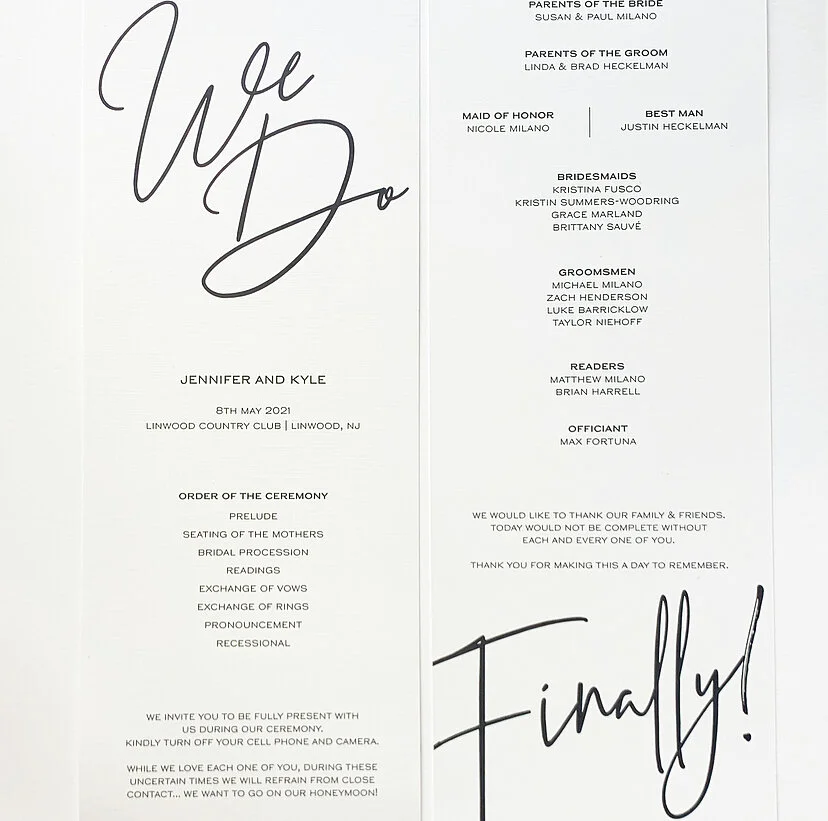 We
Do
JENNIFER AND KYLE
8TH MAY 2021
LINWOOD COUNTRY CLUB | LINWOOD, NJ
ORDER OF THE CEREMONY
PRELUDE
SEATING OF THE MOTHERS
BRIDAL PROCESSION
READINGS
EXCHANGE OF VOWS
EXCHANGE OF RINGS
PRONOUNCEMENT
RECESSIONAL
WE INVITE YOU TO BE FULLY PRESENT WITH
US DURING OUR CEREMONY.
KINDLY TURN OFF YOUR CELL PHONE AND CAMERA.
WHILE WE LOVE EACH ONE OF YOU, DURING THESE
UNCERTAIN TIMES WE WILL REFRAIN FROM CLOSE
CONTACT... WE WANT TO GO ON OUR HONEYMOON!
PARENTS OF THE BRIDE
SUSAN & PAUL MILANO
PARENTS OF THE GROOM
LINDA & BRAD HECKELMAN
MAID OF HONOR
NICOLE MILANO
BEST MAN
JUSTIN HECKELMAN
BRIDESMAIDS
KRISTINA FUSCO
KRISTIN SUMMERS-WOODRING
GRACE MARLAND
BRITTANY SAUVÉ
GROOMSMEN
MICHAEL MILANO
ZACH HENDERSON
LUKE BARRICKLOW
TAYLOR NIEHOFF
READERS
MATTHEW MILANO
BRIAN HARRELL
OFFICIANT
MAX FORTUNA
WE WOULD LIKE TO THANK OUR FAMILY & FRIENDS.
TODAY WOULD NOT BE COMPLETE WITHOUT
EACH AND EVERY ONE OF YOU.
THANK YOU FOR MAKING THIS A DAY TO REMEMBER.
Finally!